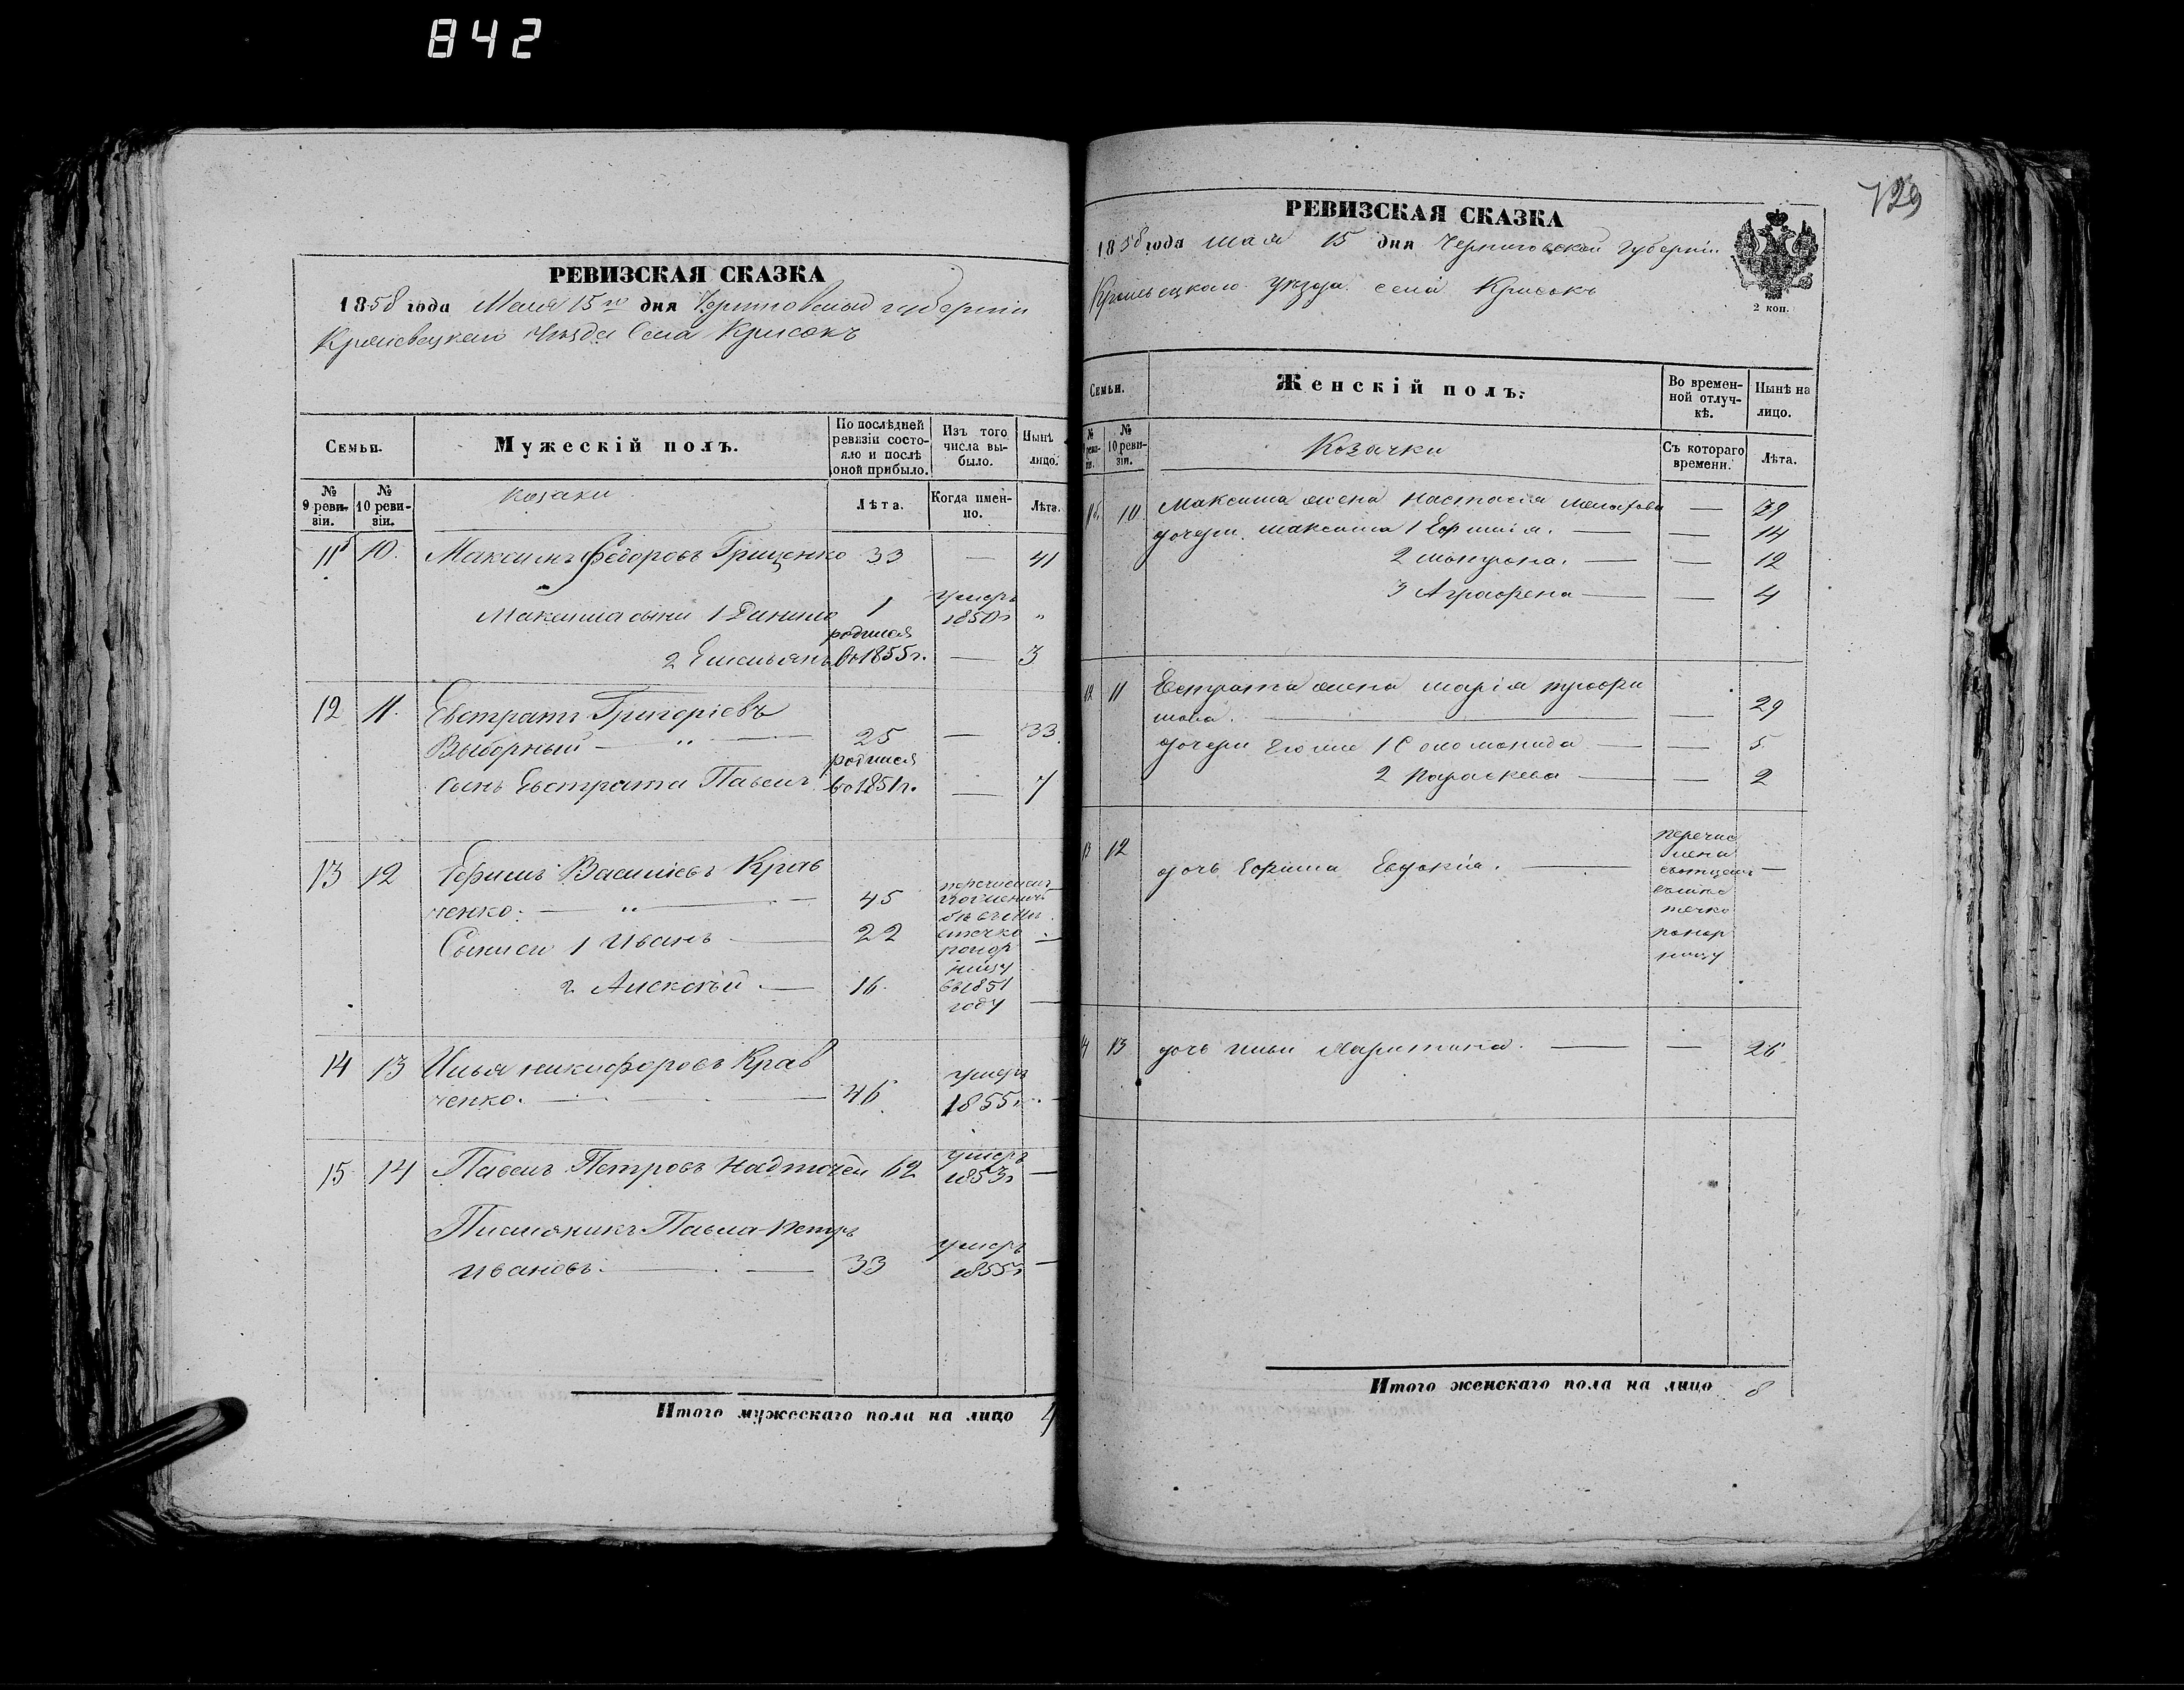 842
РЕВИЗСКАЯ СКАЗКА
1858 года Маия 15го дня Черниговской губернии
Кролевецкаго Уезда Села Крисокъ
Семьи.
Мужескій полъ.
По послѣдней ревизіи состояло и послѣ оной прибыло.
Изъ того числа выбыло.
Нынѣ лицо.
№ 9 ревизіи.
№ 10 ревизіи.
козаки
Лѣта.
Когда именно.
Лѣта.
11 10. Максимъ Федоровъ Грищенко 33 — 41
Максима сыни 1 Данило 1 умеръ 1850г "
2 Емельянъ родился въ 1855г. — 3
12 11. Евстратъ Григоріевъ
Выборный — " — 25 — 33
сынъ Евстрата Павелъ родился въ 1851г. — 7
13 12 Ефимъ Василіевъ Крав
ченко. — " — 45
Сыниси 1 Иванъ — 22
2 Алексѣй. — 16.
перечислен
въ 1851
году
14 13 Илья никифоровъ Крав
ченко. — 46 умеръ 1855г. —
15 14 Павелъ Петровъ Надточей 62 умеръ 1853г —
Племяникъ Павла петръ
ивановъ. — 33 умеръ 1855г —
Итого мужескаго пола на лицо 4
729
РЕВИЗСКАЯ СКАЗКА
1858 года мая 15 дня Черниговской Губерніи
Кролевецкаго Уезда села Крисокъ
2 коп.
Семьи.
Женскій полъ.
Во временной отлучкѣ.
Нынѣ на лицо.
№ 10 ревизіи.
Козачки
Съ котораго времени.
Лѣта.
10. Максима жена Настасіа — 39
дочери максима 1 Ефимія. — — 14
2 мотрона. — — 12
3 Аграфена — — 4
12 11 Евстрата жена марія трофи
мова. — — 29
дочери 1 Соломонида — — 5
2 параскева — — 2
13 12 дочь Ефима Евдокіа. —
перечис
лена
съ отцемъ
14 13 дочь ильи — — 26
Итого женскаго пола на лицо 8